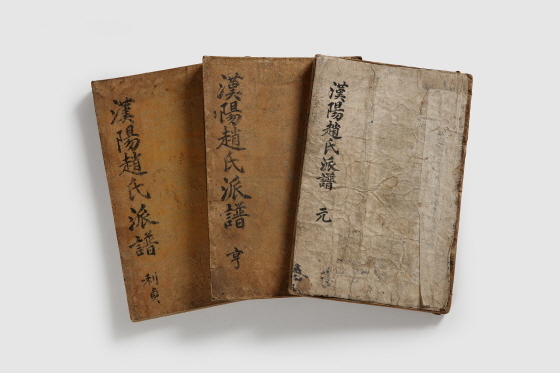 漢陽趙氏派譜 利貞
漢陽趙氏派譜 亨
漢陽趙氏派譜 元